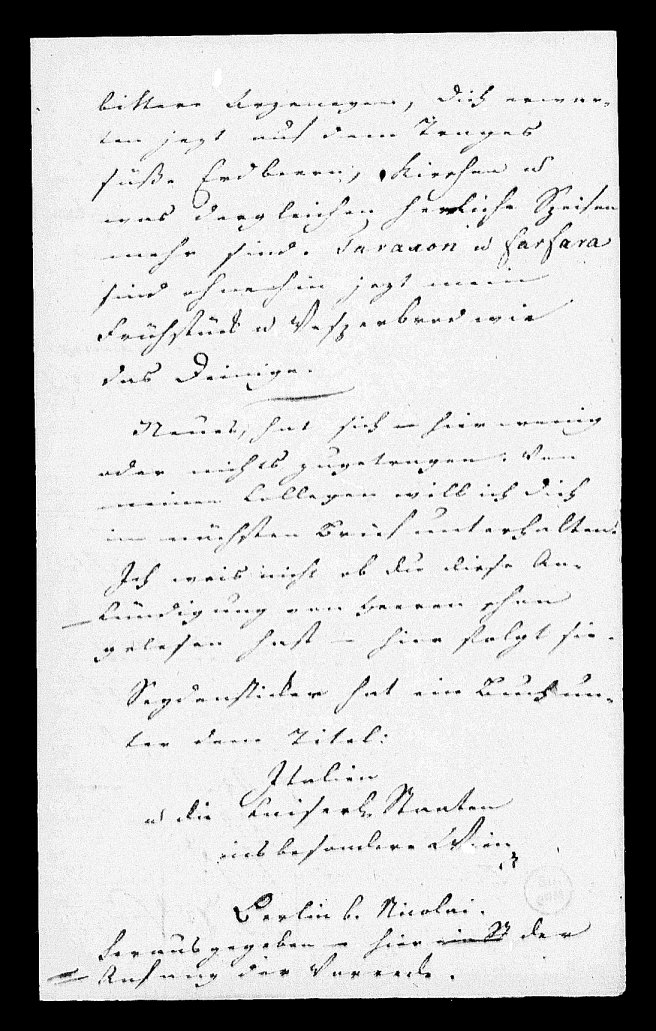 bittere Arzeneyen, Dich erwar-
ten jezt auf dem Trages
süße Erdbeern, Kirschen u
was dergleichen herrliche Speisen
mehr sind. Taraxon u farfara
sind ohnehin jezt mein
Frühstück u Vesperbrod wie
das Deinige.
Neues, hat sich – hier wenig
oder nichts zugetragen. Von
meinen Collegen will ich Dich
im nächsten Brief unterhalten.
Ich weis nicht ob du diese An-
kündigung von Herren schon
gelesen hast – hier folgt sie.
Seydensticker hat ein Buch un-
ter dem Titel:
Italien
u die Kaiserl. Staaten
insbesondere Wien
Berlin b. Nicolai.
herausgegeben – hier ist der
Anfang der Vorrede.